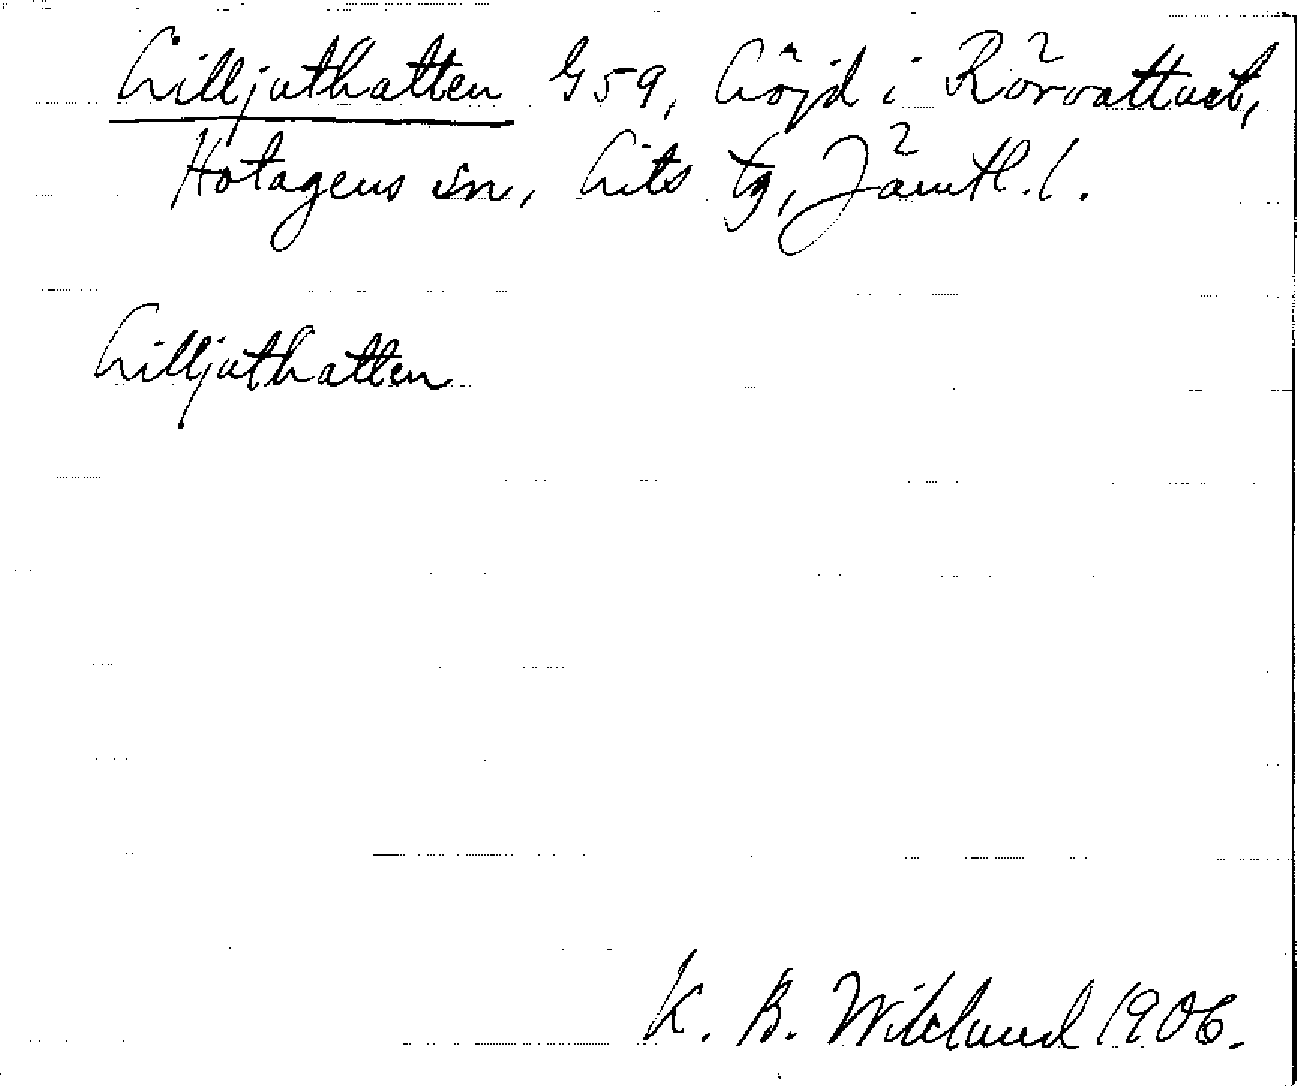 Lilljuthatten G59, höjd i Rörvattnet,
Hotagens sn, Lits tg, Jämtl. l.
Lilljuthatten
K. B. Wiklund 1906.